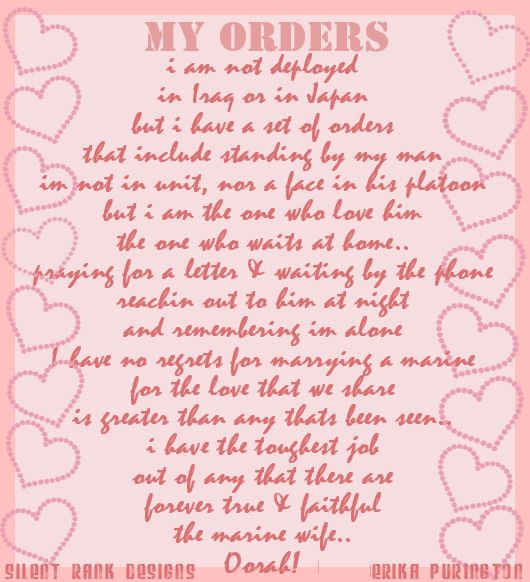 MY ORDERS
i am not deployed
in Iraq or in Japan
but i have a set of orders
that include standing by my man
im not in unit, nor a face in his platoon
but i am the one who love him
the one who waits at home..
praying for a letter & waiting by the phone
reachin out to him at night
and remembering im alone
I have no regrets for marrying a marine
for the love that we share
is greater than any thats been seen..
i have the toughest job
out of any that there are
forever true & faithful
the marine wife..
Oorah!
SILENT RANK DESIGNS
ERIKA PURINGTON